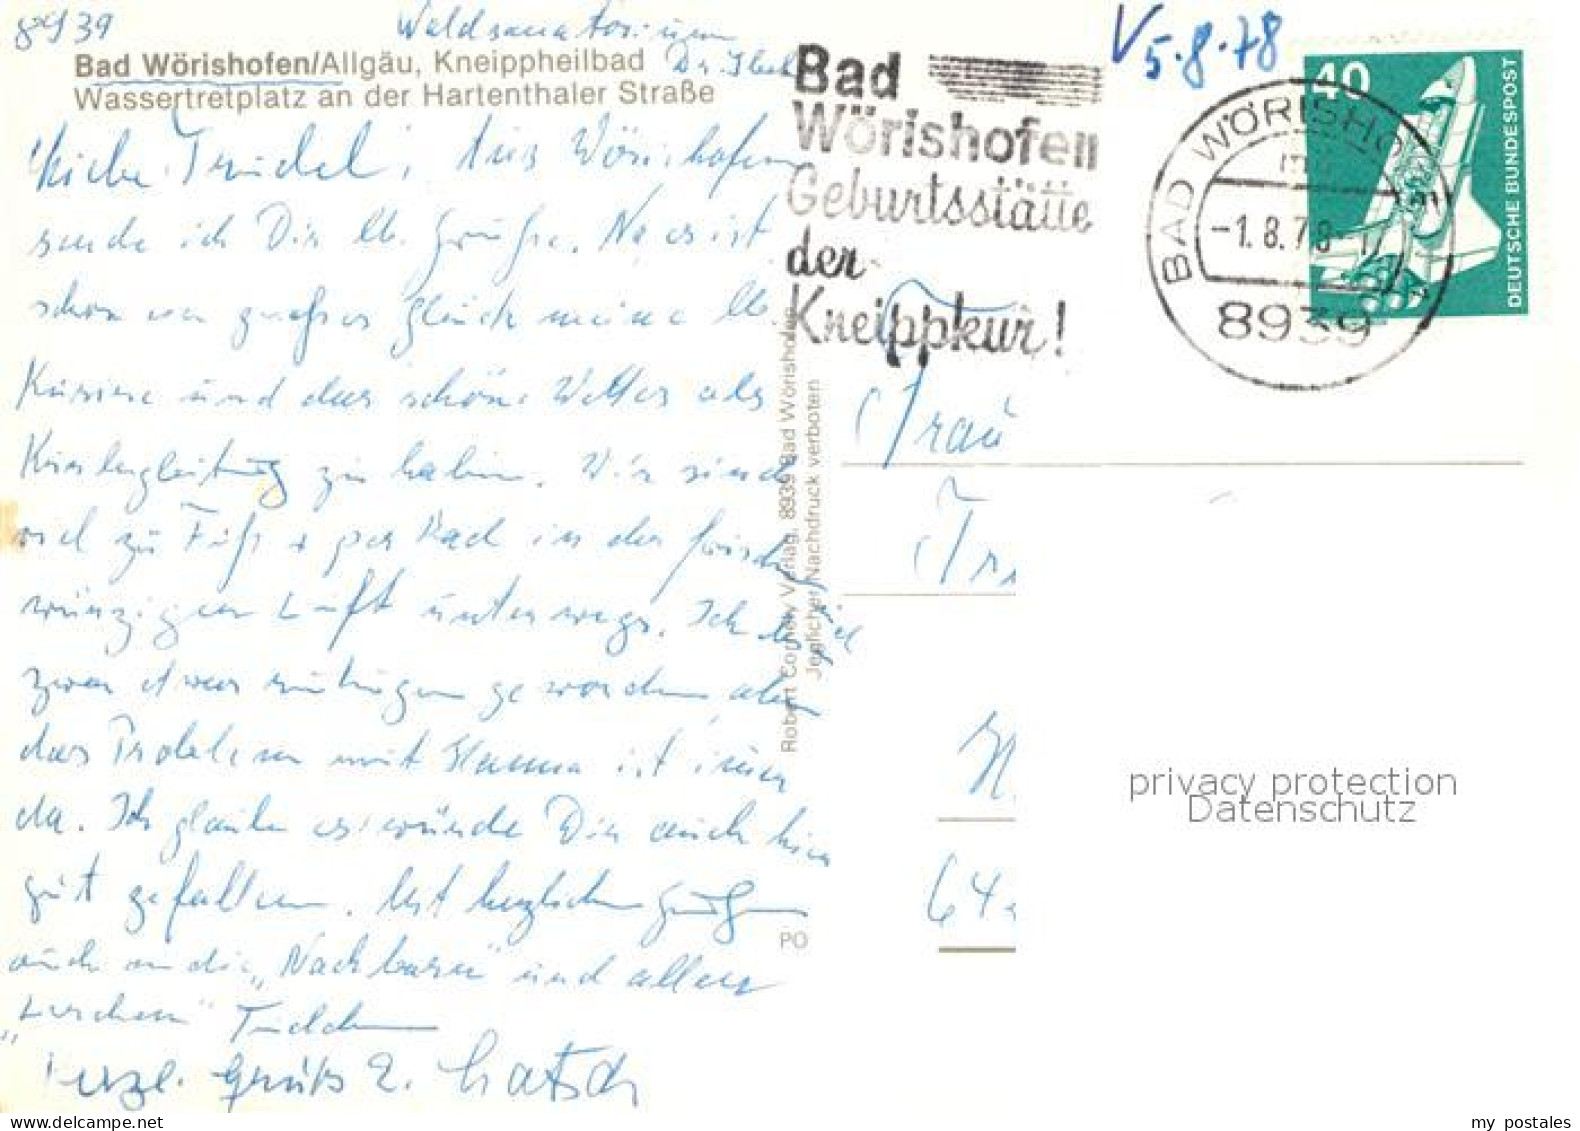 8939 Waldsanatorium
Bad Wörishofen/Allgäu, Kneippheilbad Dr.
Wassertretplatz an der Hartenthaler Straße
Trudel, Aus Wörishofen
sende ich Dir lb. Grüße. Na es ist
schon ein großes Glück meine lb.
und das schöne Wetter als
Kurbegleitung zu haben. Wir sind
viel zu Fuß + per Rad in der frischen
würzigen Luft unterwegs. Ich
zwar etwas ruhiger geworden aber
das Problem mit Hanna ist immer
da. Ich glaube es würde Dir auch hier
gut gefallen. Mit herzlichen Grüßen
auch an die „Nachbarn" und allen
herzl. Gruß
Bad
Wörishofen
Geburtsstätte
der
Kneippkur!
V 5.8.78
BAD WÖRISHO
-1.8.78
8939
40
DEUTSCHE BUNDESPOST
Robert Cornely Verlag, 8939 Bad Wörishofen
Jeglicher Nachdruck verboten
PO
Frau
Tr
64
privacy protection
Datenschutz
www.ansichtskarten-center.de
my postales